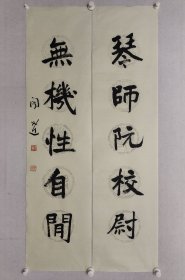 琴師阮校尉
無機性自閒